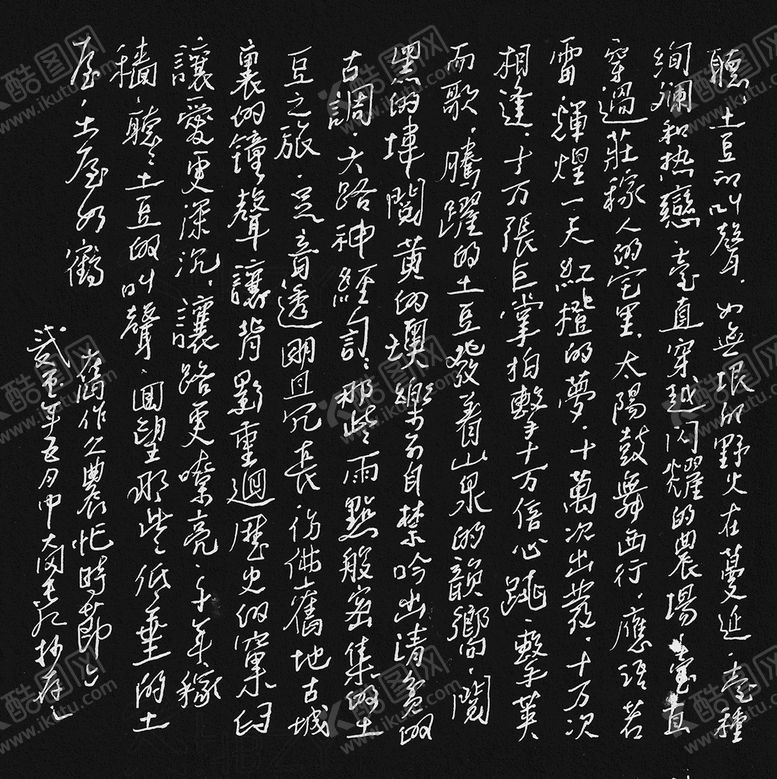 聽，土豆的叫聲，如無垠的野火在蔓延，一種
絢斕和热戀，一直穿越閃耀的農場，一直
穿過莊稼人的宅里，太陽鼓舞西行，應語若
雷，輝煌一天紅橙的夢，十萬次出發，十万次
相逢，十万張巨掌拍擊十万信心跳，擊英
而歌，騰躍的土豆發着山泉的韻響，閱
黑的埠閱黄的壩樂不自禁吟出清貧的
古調，大路神經司，那些雨點般密集的土
豆之旅，足音透明且冗長，彷佛舊地古城
裏的鐘聲讓背影重迴歷史的窠臼
讓愛更深沉，讓路更嘹亮，千年稼
穡，聽，土豆的叫聲，回望那些低垂的土
屋，土屋如鶴
舊作之農忙時節
年五月中